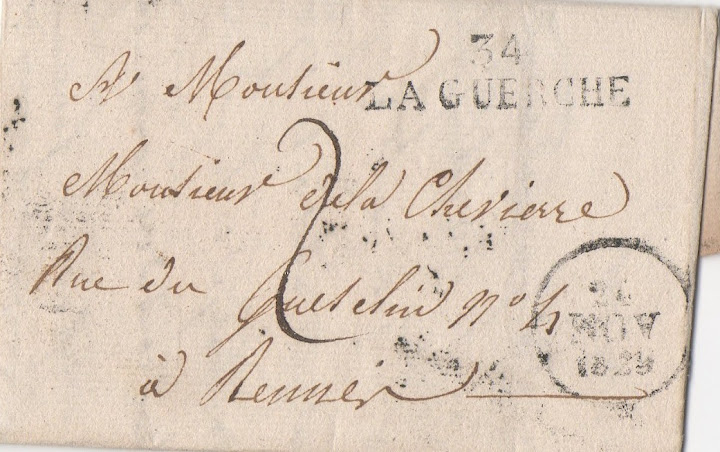 34
LA GUERCHE
A Monsieur
Monsieur de la Chevierre
2
Rue du Guesclin N° 4
à Rennes
NOV
1829